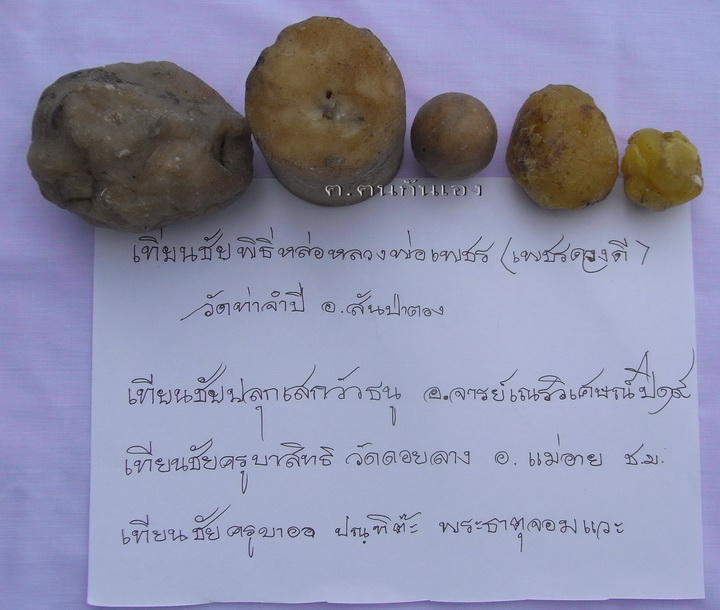 ต.คนกันเอง
เทียนชัยพิธีหล่อหลวงพ่อเพชร (เพชรดวงดี)
วัดท่าจำปี อ.สันป่าตอง
เทียนชัยปลุกเสกวัวธนู อ.จารย์เณรวิเศษณ์
เทียนชัยครูบาสิทธิ วัดดอยลาง อ. แม่อาย ช.ม.
เทียนชัยครูบาออ ปณฺฑิต๊ะ พระธาตุจอมแวะ